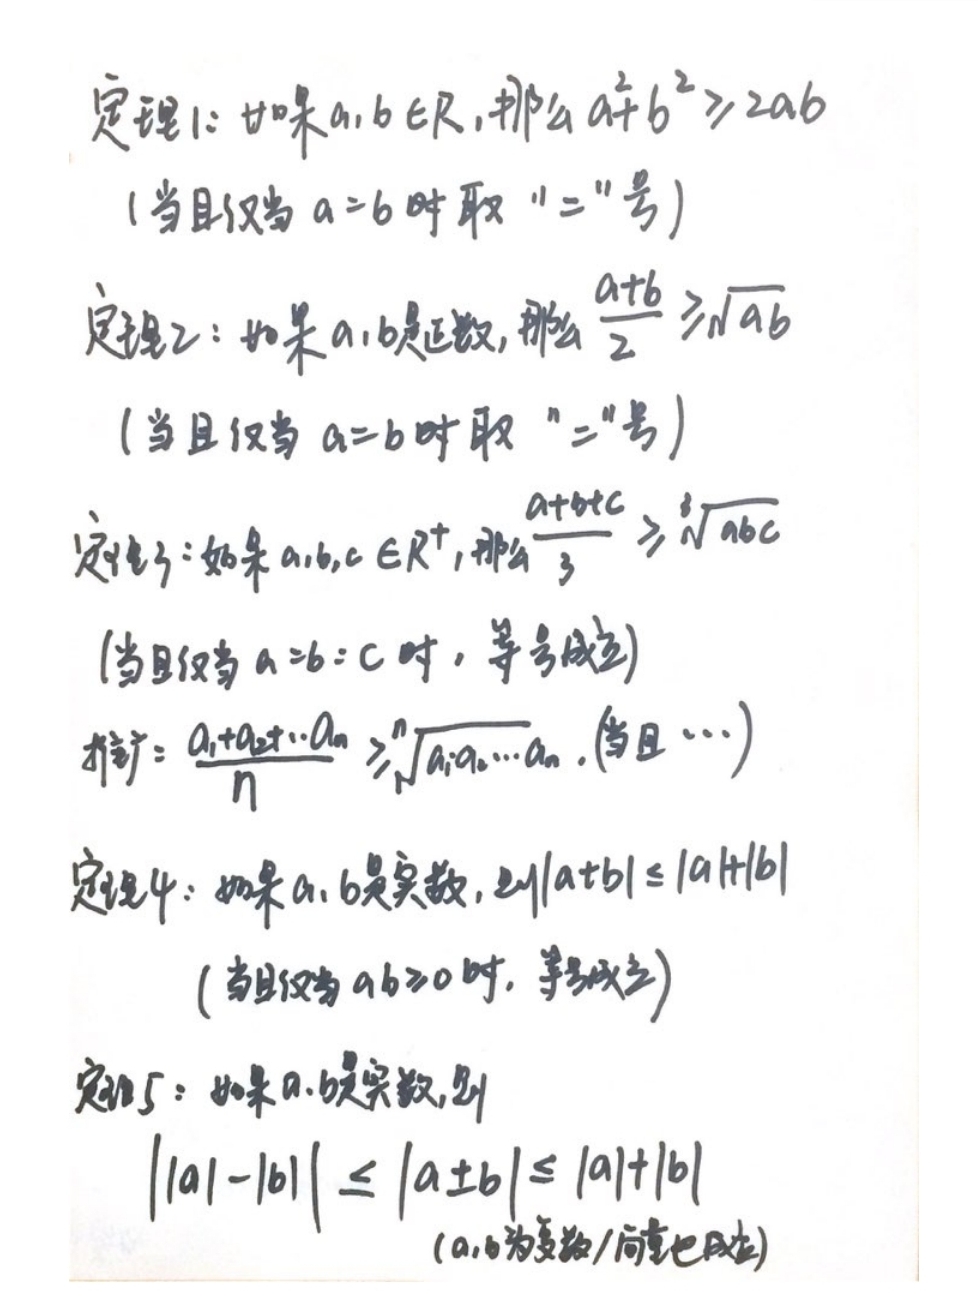 定理1: 如果a,b∈R,那么a²+b²≥2ab
(当且仅当a=b时取"="号)
定理2:如果a,b是正数,那么(a+b)/2≥√ab
(当且仅当a=b时取"="号)
定理3:如果a,b,c∈R⁺,那么(a+b+c)/3≥³√abc
(当且仅当a=b=c时,等号成立)
推广:(a₁+a₂+…aₙ)/n≥ⁿ√a₁a₂…aₙ.(当且…)
定理4:如果a,b是实数,则|a+b|≤|a|+|b|
(当且仅当ab≥0时,等号成立)
定理5:如果a,b是实数,则
||a|-|b||≤|a±b|≤|a|+|b|
(a,b为复数/向量也成立)